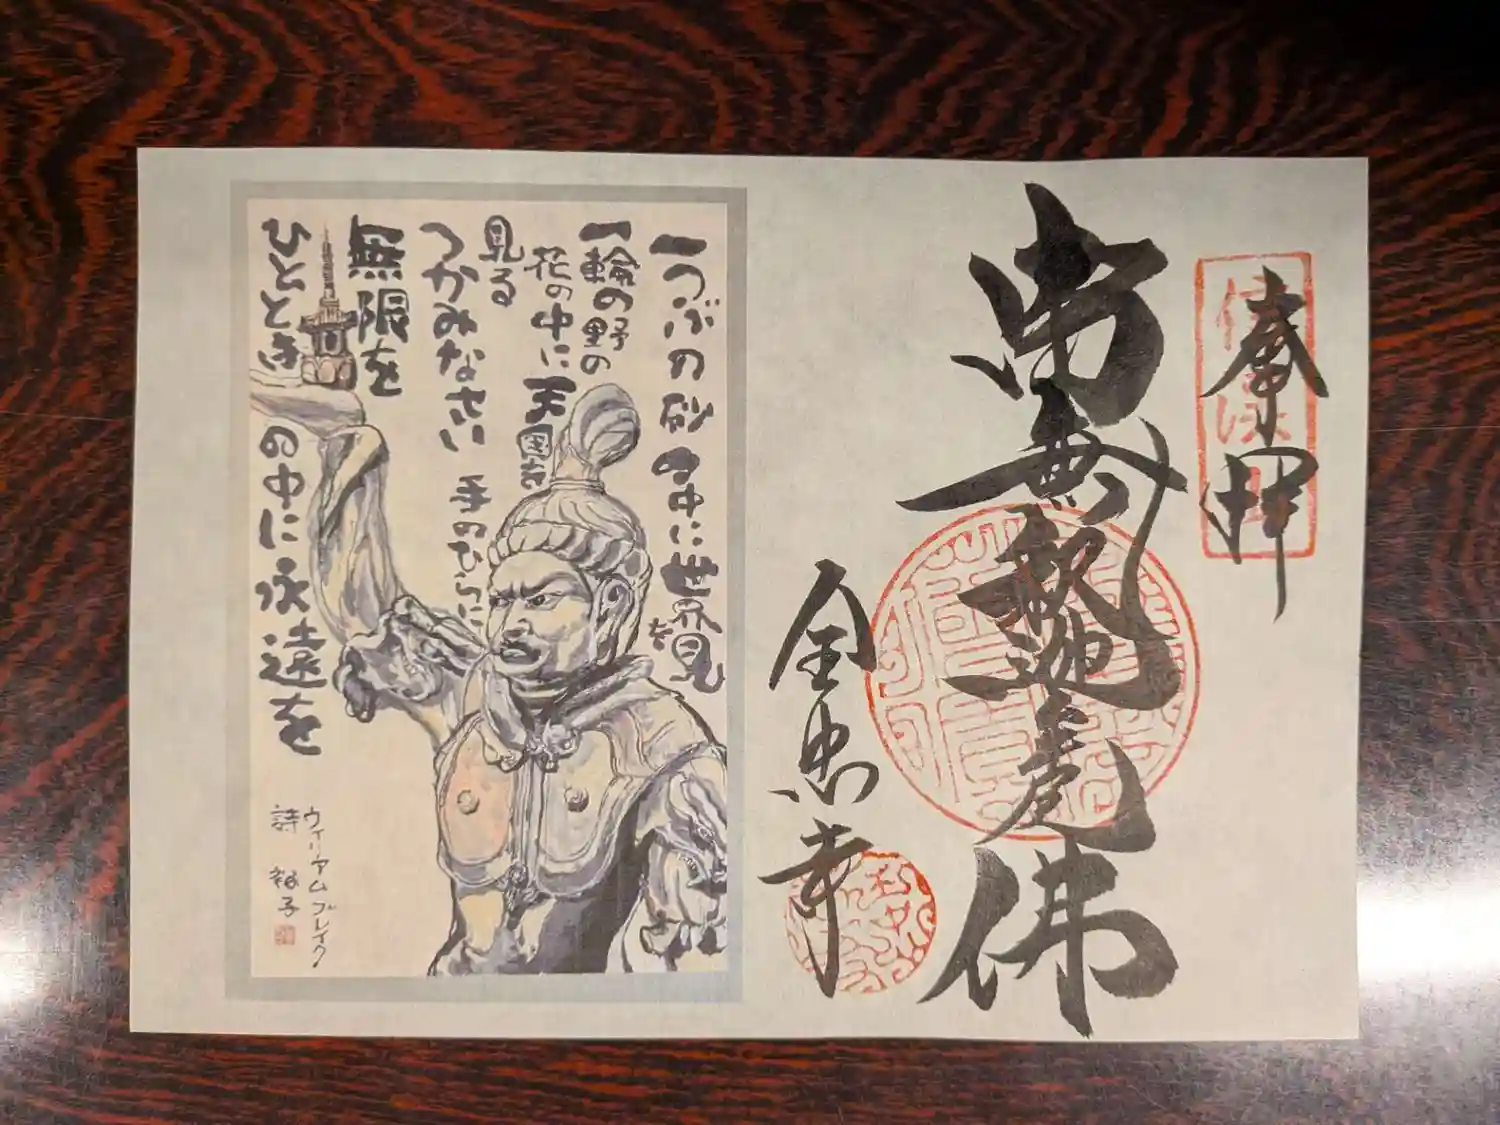 奉拝
南無釈迦尼佛
全忠寺
一つぶの砂
の中に世界を見
一輪の野の
花の中に天国を
見る
手のひらに
つかみなさい
無限を
ひととき
の中に永遠を
ウィリアムブレイク
詩 裕子